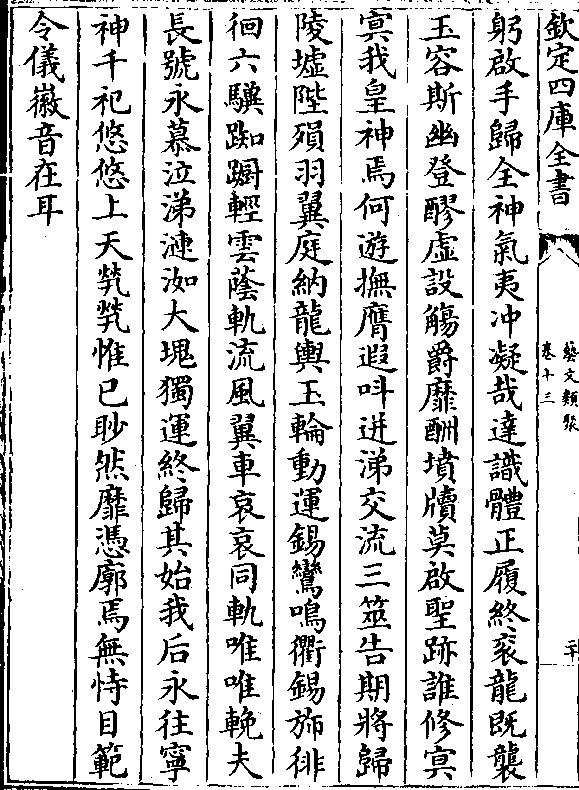 欽定四庫全書
藝文類聚
卷十三
二十
躬啟手歸全神氣夷冲凝哉達識體正履終衮龍既襲
玉容斯幽登醪虛設觴爵靡酬墳牘莫啟聖跡誰修寘
寘我皇神焉何遊撫膺遐呌迸涕交流三筮告期將歸
陵墟陛殞羽翼庭納龍輿玉輪動運錫鸞鳴衢錫斾徘
徊六驥踟蹰輕雲蔭軌流風翼車哀哀同軌唯唯輓夫
長號永慕泣涕漣洳大塊獨運終歸其始我后永往寧
神千祀悠悠上天煢煢惟已眇然靡憑廓焉無恃目範
令儀徽音在耳